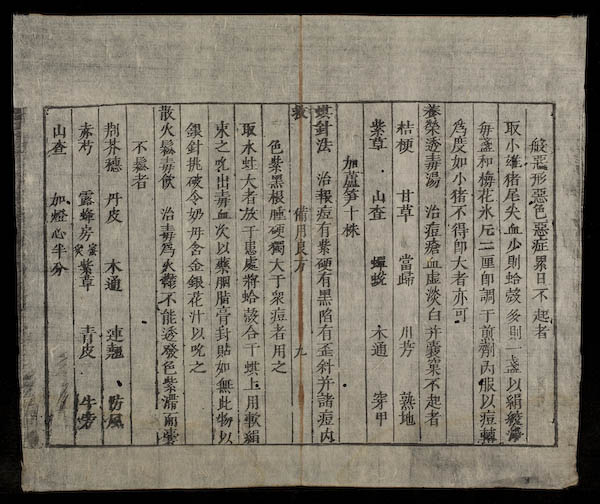 般惡形惡色惡症累日不起者
取小雄猪尾尖血少則蛤殼多則一盞以絹濾淨
每盞和梅花氷片二厘即調于前劑內服以痘轉
為度如小猪不得即大者亦可
養榮透毒湯 治痘瘡血虛淡白并囊窠不起者
桔梗 甘草 當歸 川芎 熟地
紫草 山查 蟬蛻 木通 穿甲
加蘆笋十株
蜞針法 治報痘有紫硬有黑陷有歪斜并諸痘內
救 備用良方 九
色紫黑根腫硬獨大于衆痘者用之
取水蛭大者放于患處將蛤殼合于蜞上用軟絹
束之吮出毒血次以藥胭脂膏封貼如無此物以
銀針挑破令奶母含金銀花汁以吮之
散火鬆毒飲 治毒為火鬱不能透發色紫滯而囊
不鬆者
荆芥穗 丹皮 木通 連翹 防風
赤芍 露蜂房蜜炙 紫草 青皮 牛旁
山查 加燈心半分